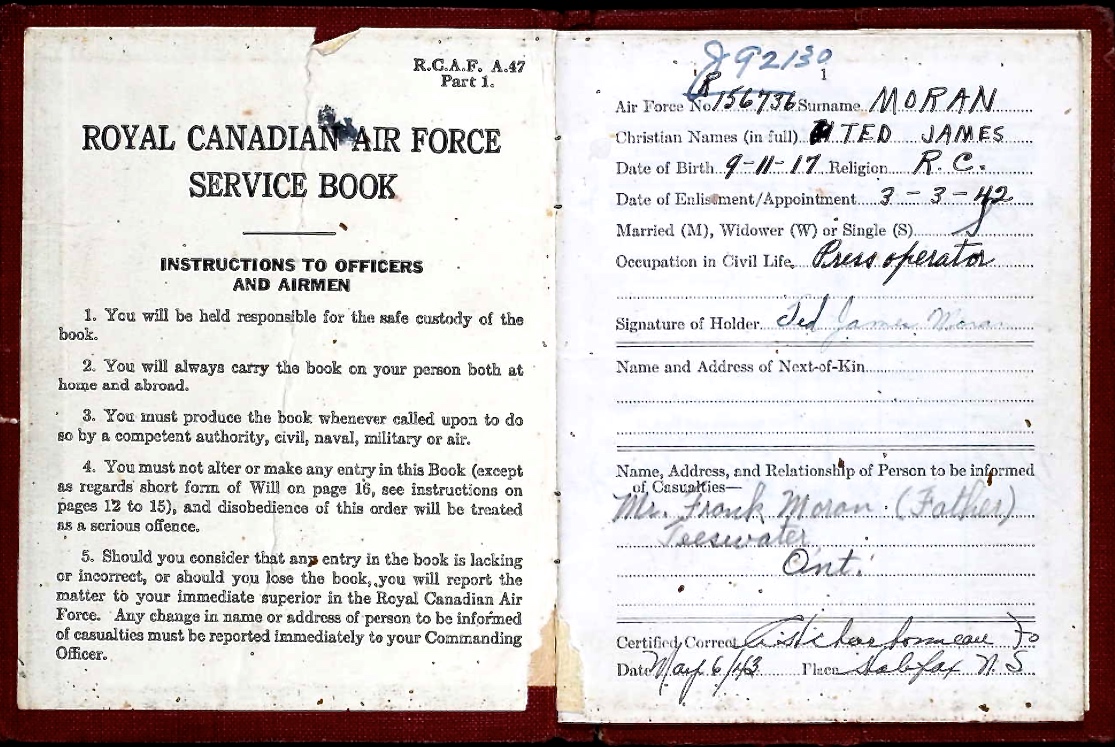 R.C.A.F. A.47
Part 1.
ROYAL CANADIAN AIR FORCE
SERVICE BOOK
INSTRUCTIONS TO OFFICERS
AND AIRMEN
1. You will be held responsible for the safe custody of the
book.
2. You will always carry the book on your person both at
home and abroad.
3. You must produce the book whenever called upon to do
so by a competent authority, civil, naval, military or air.
4. You must not alter or make any entry in this Book (except
as regards short form of Will on page 16, see instructions on
pages 12 to 15), and disobedience of this order will be treated
as a serious offence.
5. Should you consider that any entry in the book is lacking
or incorrect, or should you lose the book, you will report the
matter to your immediate superior in the Royal Canadian Air
Force. Any change in name or address of person to be informed
of casualties must be reported immediately to your Commanding
Officer.
J92130
1
Air Force No. R156736 Surname MORAN
Christian Names (in full) TED JAMES
Date of Birth 9-11-17 Religion R.C.
Date of Enlistment/Appointment 3-3-42
Married (M), Widower (W) or Single (S) S
Occupation in Civil Life Press operator
Signature of Holder Ted James Moran
Name and Address of Next-of-Kin
Name, Address, and Relationship of Person to be informed
of Casualties—
Mr. Frank Moran (Father)
Teeswater
Ont.
Certified Correct F/O
Date May 6/43 Place Halifax N.S.